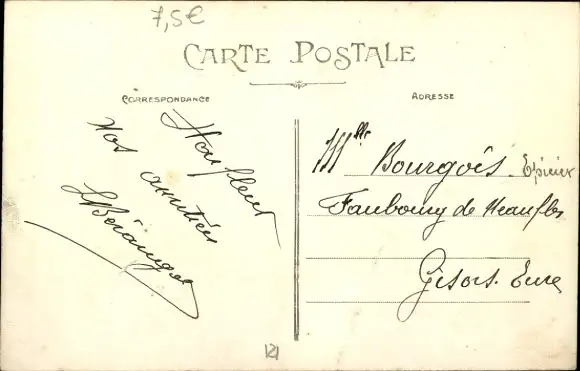 7,5€
CARTE POSTALE
CORRESPONDANCE
ADRESSE
Honfleur
Nos amitiés
L Béranger
Mlle Bourgois. Epicier
Faubourg de Neaufles
Gisors. Eure
121